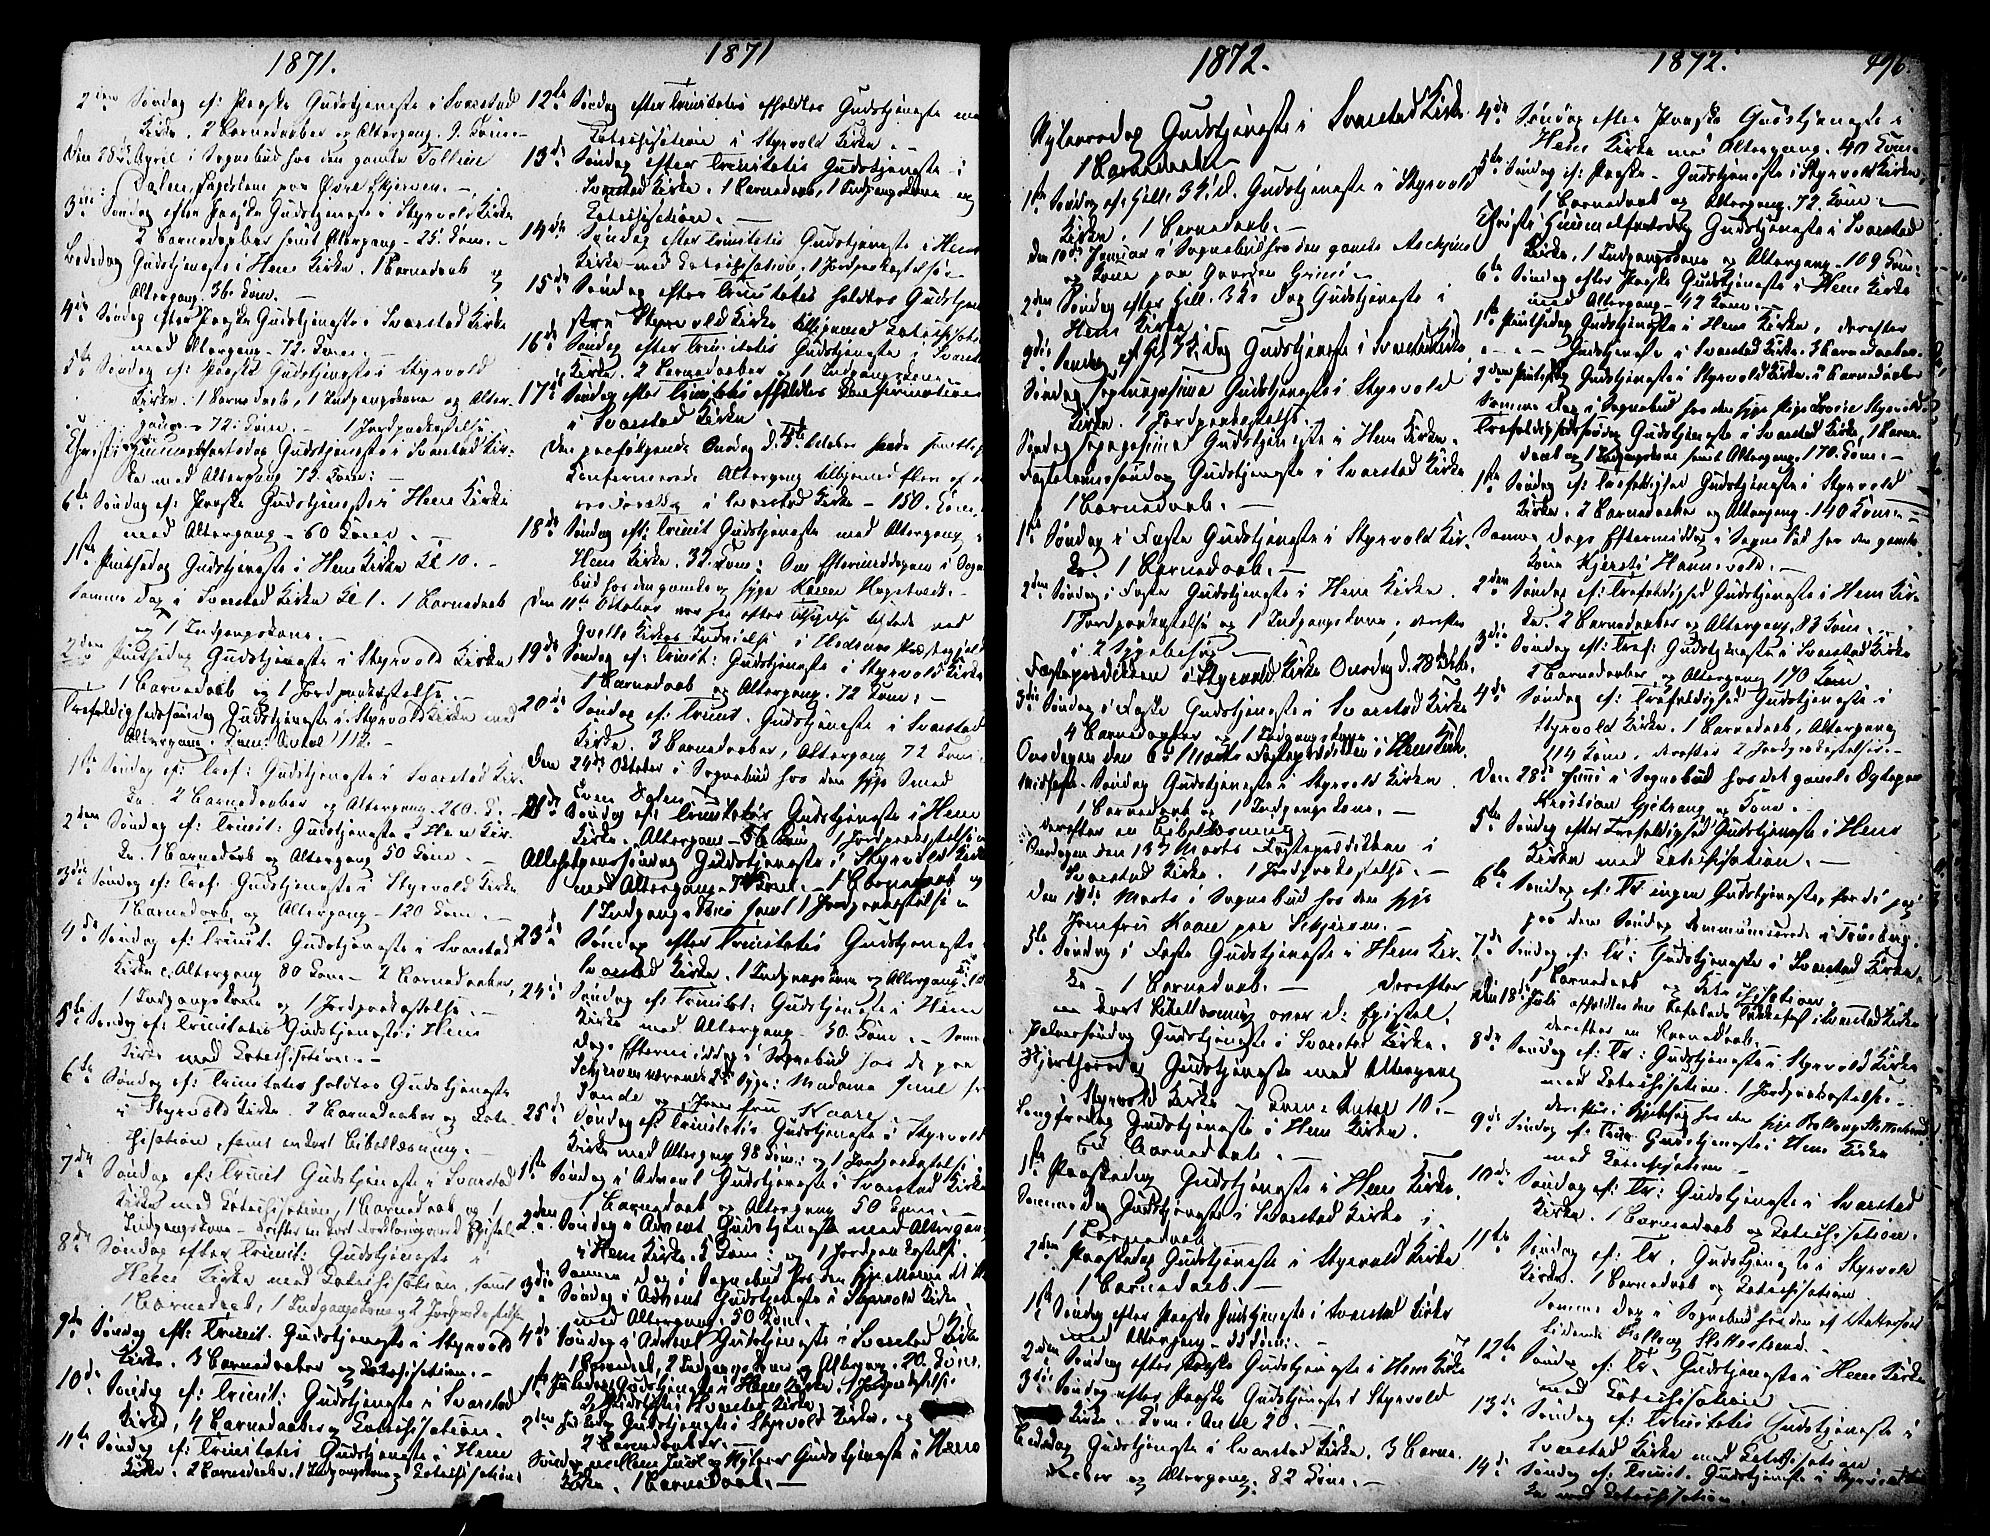 1871.
2den Søndag ef: Paaske Gudstjeneste i Svarstad
Kirke. 2 Barnedaaber og Altergang. 9. Kom:
Den 28de April i Sognebud hos den gamle
Dalen, paa Øvre Skjerven.
3die Søndag efter Paaske Gudstjeneste i Styrvold Kirke
2 Barnedaaber samt Altergang - 25. Kom.
Bededag Gudstjeneste i Hem Kirke. 1 Barnedaab og
Altergang. 36. Kom.
4de Søndag efter Paaske Gudstjeneste i Svarstad Kirke
med Altergang - 72. Kom.
5te Søndag ef: Paaske Gudstjeneste i Styrvold
Kirke. 1 Barnedaab, 1 Indgangskone og Alter-
gang - 72. Kom. - 1 Jordpaakastelse.
Christi Himmelfartsdag Gudstjeneste i Svarstad Kir-
ke med Altergang 72. Kom:
6te Søndag ef: Paaske Gudstjeneste i Hem Kirke
med Altergang - 60 Kom.
1ste Pintsedag Gudstjeneste i Hem Kirke Kl 10.
Samme Dag i Svarstad Kirke Kl 1. 1 Barnedaab
og 1 Indgangskone.
2den Pintsedag Gudstjeneste i Styrvold Kirke
1 Barnedaab og 1 Jordpaakastelse.
Trefoldighedssøndag Gudstjeneste i Styrvold Kirke med
Altergang. Kom: Antal 112.
1ste Søndag ef: Tref: Gudstjeneste i Svarstad Kir-
ke. 2 Barnedaaber og Altergang - 260. K.
2den Søndag ef: Trinit: Gudstjeneste i Hem Kir-
ke. 1 Barnedaab og Altergang 50 Kom.
3die Søndag ef: Tref: Gudstjeneste i Styrvold Kirke
1 Barnedaab og Altergang - 120 Kom.
4de Søndag ef: Trinit. Gudstjeneste i Svarstad
Kirke. Altergang 80 Kom - 2 Barnedaaber,
1 Indgangskone og 1 Jordpaakastelse.
5te Søndag ef: Trinitatis Gudstjeneste i Hem
Kirke med Catechisation.
6te Søndag ef: Trinitatis holdtes Gudstjeneste
i Styrvold Kirke. 2 Barnedaaber og Cate-
chisation, samt en kort Bibellæsning.
7de Søndag ef: Trinit Gudstjeneste i Svarstad
Kirke med Catechisation, 1 Barnedaab og 1
Indgangskone
8de Søndag efter Trinit: Gudstjeneste i
Hems Kirke med Catechisation, samt
1 Barnedaab, 1 Indgangskone og 2 Jordpaakastelser
9de Søndag eft: Trinit. Gudstjeneste i Styrvold
Kirke. 3 Barnedaaber og Catechisation.
10de Søndag ef: Trinit: Gudstjeneste i Svarstad
Kirke, 4 Barnedaaber og Catechisation.
11te Søndag ef: Trinitatis Gudstjeneste i Hem
Kirke. 2 Barnedaaber, 1 Indgangskone og Catechisation.
1871
12te Søndag efter Trinitatis afholdtes Gudstjeneste med
Catechisation i Styrvold Kirke.
13de Søndag efter Trinitatis Gudstjeneste i
Svarstad Kirke. 1 Barnedaab, 1 Indgangskone og
Catechisation.
14de Søndag efter Trinitatis Gudstjeneste i Hem
Kirke med Catechisation. 1 Jordpaakastelse.
15de Søndag efter Trinitatis holdtes Gudstjene
ste i Styrvold Kirke tilligemed Catechisation
16de Søndag efter Trinitatis Gudstjeneste i Svarstad
Kirke. 2 Barnedaaber og 1 Indgangskone.
17de Søndag efter Trinitatis afholdtes Confirmation
i Svarstad Kirke
Den paafølgende Onsdag d. Oktober
Confirmerede Altergang tilligemed
i Svarstad Kirke - 150. Kom.
18de Søndag eft: Trinit Gudstjeneste med Altergang i
Hem Kirke. 32. Kom: Om Eftermiddagen i Sogne
bud hos den gamle og syge Karen
Den 11te Oktober
Kirkes Indvielse i Hedrums Præstegjeld
19de Søndag ef: Trinit: Gudstjeneste i Styrvold Kirke
1 Barnedaab og Altergang. 72 Kom:
20de Søndag ef: Trinit. Gudstjeneste i Svarstad
Kirke. 3 Barnedaaber, Altergang 72 Kom.
Den 24de Oktober i Sognebud hos den syge Smed
Even Dalen
21de Søndag ef: Trinitatis Gudstjeneste i Hem
Kirke. Altergang - 56 Kom, 1 Jordpaakastelse
Allehelgenssøndag Gudstjeneste i Styrvold Kirke
med Altergang - Kom. - 1 Barnedaab og
1 Indgangskone samt 1 Jordpaakastelse
23de Søndag efter Trinitatis Gudstjeneste i
Svarstad Kirke. 1 Indgangskone og Altergang.
24de Søndag ef: Trinitat: Gudstjeneste i Hem
Kirke med Altergang - 30. Kom. - Samme
Dags Eftermiddag i Sognebud hos de paa
Skjerven værende 2de Syge: Madame Juul
og Jomfru Kaare.
25de Søndag ef: Trinitatis Gudstjeneste i Styrvold
Kirke med Altergang 98 Kom: og 1 Jordpaakastelse
1ste Søndag i Advent Gudstjeneste i Svarstad Kirke
1 Barnedaab og Altergang 50 Kom.
2den Søndag i Advent Gudstjeneste med Altergang
i Hem Kirke. 5 Kom: og 1 Jordpaakastelse.
Samme Dag i Sognebud hos den syge Maren
3die Søndag i Advent Gudstjeneste i Styrvold Kirke
med Altergang. 50 Kom.
4de Søndag i Advent Gudstjeneste i Svarstad Kirke
1 Barnedaab, 2 Indgangskoner og Altergang. 20. Kom.
1ste Juledag Gudstjeneste i Hem Kirke. 1 Jordpaakastelse
Gudstjeneste i Svarstad Kirke
2den Juledag Gudstjeneste i Styrvold Kirke. og
2 Barnedaaber.
Søndag mellem Juul og Nytaar Gudstjeneste i Hems
Kirke. 1 Barnedaab.
1872.
Nytaarsdag Gudstjeneste i Svarstad Kirke
1 Barnedaab
1ste Søndag ef: Hell. 3 K: D. Gudstjeneste i Styrvold
Kirke. 1 Barnedaab.
Den 10de Januar i Sognebud hos den gamle
og Kone paa Gaarden
2den Søndag efter Hell. 3 K: Dag Gudstjeneste i
Hems Kirke
3die Søndag ef Hell 3 K. Dag Gudstjeneste i Svarstad Kirke
Søndag Septuagesima Gudstjeneste i Styrvold
Kirke. 1 Jordpaakastelse.
Søndag Sexagesima Gudstjeneste i Hem Kirke.
Fastelavnssøndag Gudstjeneste i Svarstad Kirke
1 Barnedaab.
1ste Søndag i Faste Gudstjeneste i Styrvold Kir-
ke. 1 Barnedaab.
2den Søndag i Faste Gudstjeneste i Hem Kirke.
1 Jordpaakastelse og 1 Indgangskone, derefter
i 2 Sygebesøg.
Fasteprædiken i Styrvold Kirke Onsdag d. 28de Feb.
3die Søndag i Faste Gudstjeneste i Svarstad Kirke
4 Barnedaaber og 1 Indgangskone.
Onsdagen den 6te Marts Fasteprædiken i Hem Kirke.
Midfaste - Søndag Gudstjeneste i Styrvold Kirke.
1 Barnedaab og 1 Indgangskone.
derefter en Bibellæsning
Onsdagen den 13de Marts Fasteprædiken i
Svarstad Kirke. 1 Jordpaakastelse.
Den 19de Marts i Sognebud hos den syge
Jomfru Kaare paa Skjerven.
5te Søndag i Faste Gudstjeneste i Hem Kir-
ke - 1 Barnedaab. - derefter
en kort Bibellæsning over d: Epistel.
Palmesøndag Gudstjeneste i Svarstad Kirke.
Skjærthorsdag Gudstjeneste med Altergang
i Styrvold Kirke - Kom: Antal 10.
Langfredag Gudstjeneste i Hem Kirke.
En Barnedaab.
1ste Paaskedag Gudstjeneste i Hem Kirke.
Samme Dag Gudstjeneste i Svarstad Kirke
1 Barnedaab.
2den Paaskedag Gudstjeneste i Styrvold Kirke
1 Barnedaab.
1ste Søndag efter Paaske Gudstjeneste i Svarstad Kirke
med Altergang - Kom:
2den Søndag efter Paaske Gudstjeneste i Hem Kirke
3die Søndag efter Paaske Gudstjeneste i Styrvold
Kirke. Kom: Antal 20.
Bededag Gudstjeneste i Svarstad Kirke. 3 Barne-
daaber og Altergang. 82 Kom.
1872. 496.
4de Søndag efter Paaske Gudstjeneste i
Hem Kirke med Altergang. 40 Kom.
5te Søndag ef: Paaske - Gudstjeneste i Styrvold Kirke,
1 Barnedaab og Altergang. 72. Kom:
Christi Himmelfartsdag Gudstjeneste i Svarstad
Kirke, 1 Indgangskone og Altergang - 109 Kom:
6te Søndag efter Paaske Gudstjeneste i Hem Kirke
med Altergang - 42 Kom.
1ste Pintsedag Gudstjeneste i Hem Kirke, derefter
Gudstjeneste i Svarstad Kirke. 3 Barnedaaber.
2den Pintsedag Gudstjeneste i Styrvold Kirke. 2 Barnedaaber
Samme Dag i Sognebud hos den syge Pige Styrvold
Trefoldighedssøndag Gudstjeneste i Svarstad Kirke, 1 Barne-
daab og 1 Indgangskone samt Altergang. 170. Kom.
1ste Søndag ef: Trefoldighed Gudstjeneste i Styrvold
Kirke. 2 Barnedaaber og Altergang - 140 Kom.
Samme Dags Eftermiddag i Sognebud hos den gamle
Kone Kjersti Hannevold.
2den Søndag ef: Trefoldighed Gudstjeneste i Hem Kir-
ke. 2 Barnedaaber og Altergang. 83 Kom.
3die Søndag eft: Tref: Gudstjeneste i Svarstad Kirke
2 Barnedaaber og Altergang 170 Kom
4de Søndag ef: Trefoldighed Gudstjeneste i
Styrvold Kirke. 1 Barnedaab, Altergang
114 Kom, derefter 2 Jordpaakastelser.
Den 28de Juni i Sognebud hos det gamle Ægtepar
Kristian og Kone.
5te Søndag efter Trefoldighed Gudstjeneste i Hems
Kirke med Catechisation.
6te Søndag ef: Tr ingen Gudstjeneste, fordi jeg
paa den Søndag kommunicerede i Tønsberg.
7de Søndag ef: Tr: Gudstjeneste i Svarstad Kirke.
1 Barnedaab og Catechisation.
Den 18de Juli afholdtes den befalede Takkefest i Svarstad Kirke
derefter en Barnedaab.
8de Søndag ef: Tr: Gudstjeneste i Styrvold Kirke
med Catechisation. 1 Jordpaakastelse.
derefter i Sygebesøg hos den syge
9de Søndag ef: Trin. Gudstjeneste i Hems Kirke
med Catechisation
10de Søndag ef: Tr: Gudstjeneste i Svarstad
Kirke. 1 Barnedaab og Catechisation.
11te Søndag ef: Tr. Gudstjeneste i Styrvold
Kirke. 1 Barnedaab og Catechisation.
Samme Dag i Sognebud hos den af
lidende
12te Søndag ef: Tr. Gudstjeneste i Hem Kirke
med Catechisation
13de Søndag ef: Trinitatis Gudstjeneste i
Svarstad Kirke med Catechisation
14de Søndag ef: Trinit: Gudstjeneste i Styrvold Kir
ke med Catechisation.